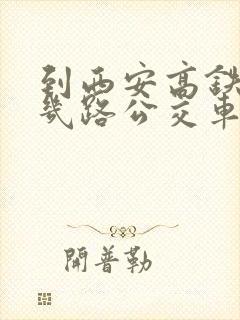 到西安高铁
几路公交车
開普勒